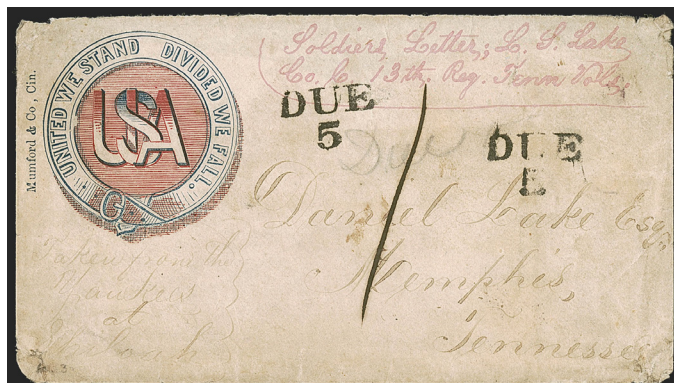 Mumford & Co, Cin.
UNITED WE STAND DIVIDED WE FALL.
USA
Soldiers Letter; L. S. Lake
Co. C, 13th. Reg. Tenn Vols,
DUE
5
Due
DUE
Daniel Lake Esq.
Memphis,
Tennessee
Taken from the
Yankees
at